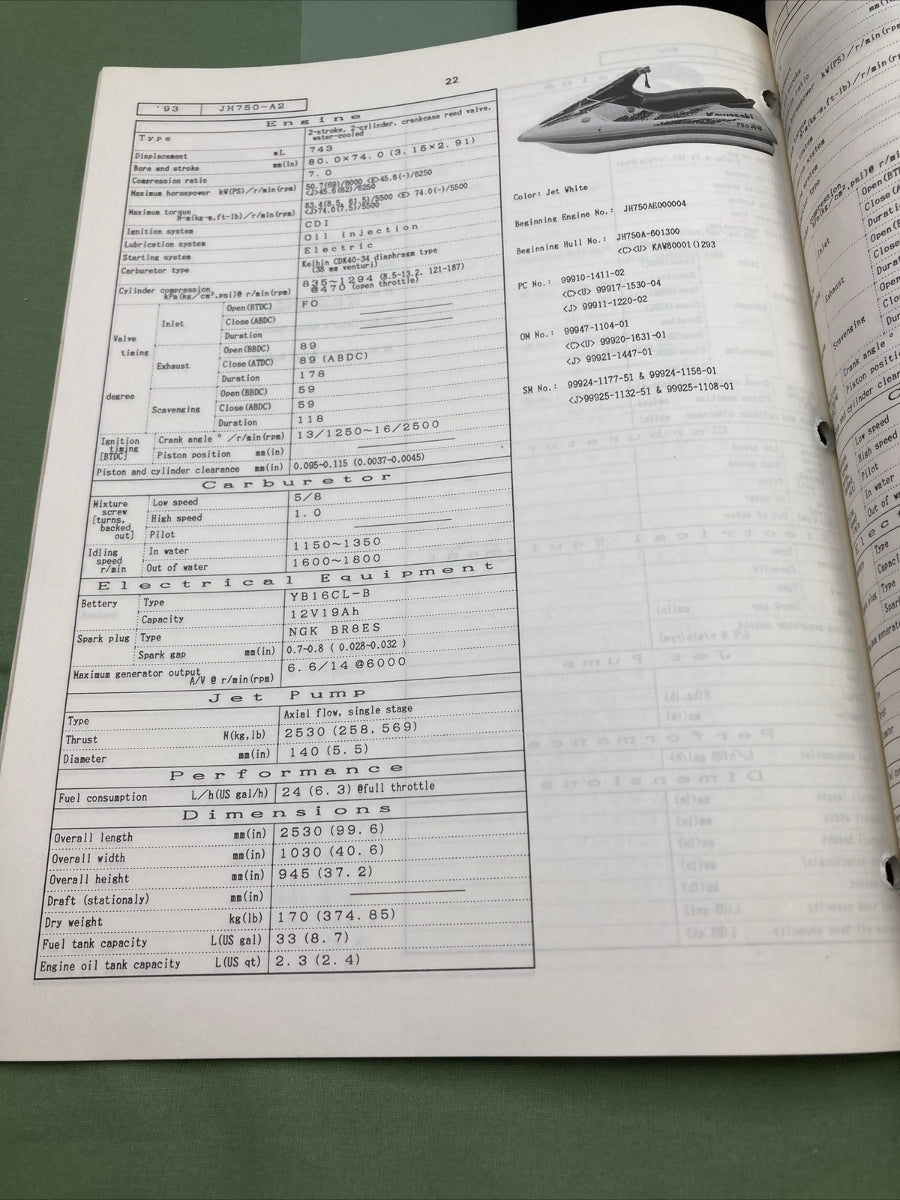 22
'93 JH750-A2
Engine
Type 2-stroke, 2-cylinder, crankcase reed valve,
water-cooled
Displacement mL 743
Bore and stroke mm(in) 80.0×74.0 (3.15×2.91)
Compression ratio 7.0
Maximum horsepower kW(PS)/r/min(rpm) 50.7(69)/6000 <E>45.6(-)/6250
<J>45.6(62)/6250
Maximum torque 83.4(8.5, 61.5)/5500 <E> 74.0(-)/5500
N-m(kg-m,ft-lb)/r/min(rpm) <J>74.0(7.5)/5500
Ignition system CDI
Lubrication system Oil injection
Starting system Electric
Carburetor type Keihin CDK40-34 diaphragm type
(38 mm venturi)
Cylinder compression 835~1294 (8.5-13.2, 121-187)
kPa(kg/cm²,psi)@ r/min(rpm) @470 (open throttle)
Valve timing degree
Inlet Open(BTDC) FO
Close(ABDC)
Duration
Exhaust Open(BBDC) 89
Close(ATDC) 89 (ABDC)
Duration 178
Scavenging Open(BBDC) 59
Close(ABDC) 59
Duration 118
Ignition timing [BTDC] Crank angle °/r/min(rpm) 13/1250~16/2500
Piston position mm(in)
Piston and cylinder clearance mm(in) 0.095-0.115 (0.0037-0.0045)
Carburetor
Mixture screw [turns, backed out] Low speed 5/8
High speed 1.0
Pilot
Idling speed r/min In water 1150~1350
Out of water 1600~1800
Electrical Equipment
Bettery Type YB16CL-B
Capacity 12V19Ah
Spark plug Type NGK BR8ES
Spark gap mm(in) 0.7-0.8 ( 0.028-0.032 )
Maximum generator output 6.6/14 @6000
A/V @ r/min(rpm)
Jet Pump
Type Axial flow, single stage
Thrust N(kg,lb) 2530 (258, 569)
Diameter mm(in) 140 (5.5)
Performance
Fuel consumption L/h(US gal/h) 24 (6.3) @full throttle
Dimensions
Overall length mm(in) 2530 (99.6)
Overall width mm(in) 1030 (40.6)
Overall height mm(in) 945 (37.2)
Draft (stationaly) mm(in)
Dry weight kg(lb) 170 (374.85)
Fuel tank capacity L(US gal) 33 (8.7)
Engine oil tank capacity L(US qt) 2.3 (2.4)
Kawasaki
Color: Jet White
Beginning Engine No.: JH750AE000004
Beginning Hull No.: JH750A-601300
<C><U> KAW80001()293
PC No.: 99910-1411-02
<C><U> 99917-1530-04
<J> 99911-1220-02
OM No.: 99947-1104-01
<C><U> 99920-1631-01
<J> 99921-1447-01
SM No.: 99924-1177-51 & 99924-1156-01
<J>99925-1132-51 & 99925-1108-01
Inlet
Exhaust
Scavenging
Crank angle °
Piston position
cylinder clearance
Low speed
High speed
Pilot
In water
Out of water
Type
Type